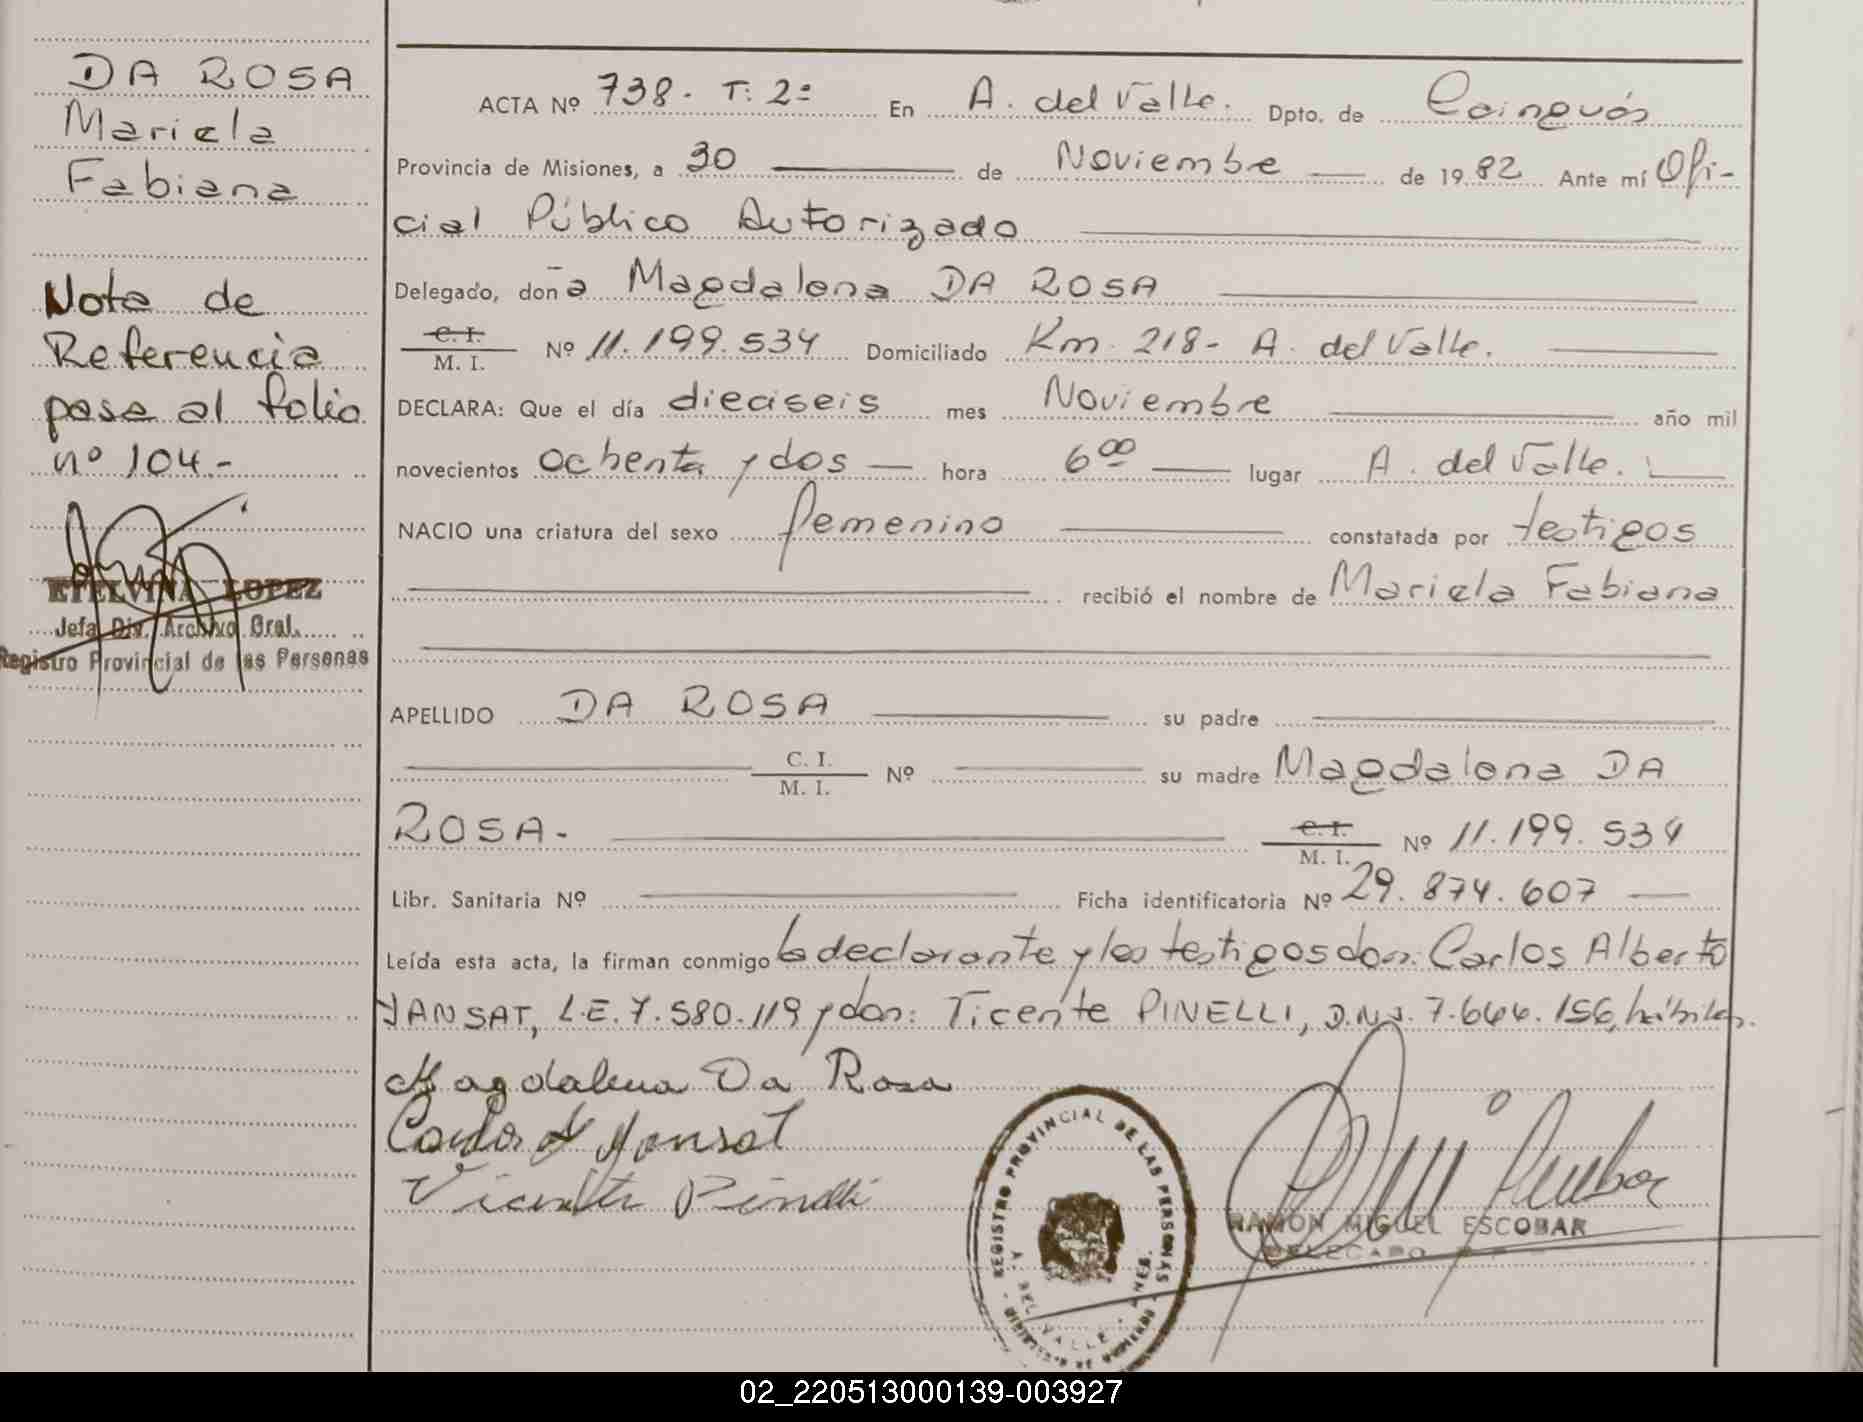 DA ROSA
Mariela
Fabiana
Nota de
Referencia
pasa al folio
nº 104.-
ETELVINA LOPEZ
Jefa Div. Archivo Gral.
Registro Provincial de las Personas
ACTA Nº 738. T: 2º En A. del Valle. Dpto. de Cainguás
Provincia de Misiones, a 30 de Noviembre de 1982 Ante mí Ofi-
cial Público Autorizado
Delegado, doña Magdalena DA ROSA
C. I.
M. I. Nº 11.199.534 Domiciliado Km. 218- A. del Valle.
DECLARA: Que el día dieciseis mes Noviembre año mil
novecientos ochenta y dos hora 6 00 lugar A. del Valle.
NACIO una criatura del sexo femenino constatada por testigos
recibió el nombre de Mariela Fabiana
APELLIDO DA ROSA su padre
C. I.
M. I. Nº su madre Magdalena DA
ROSA- C. I.
M. I. Nº 11.199.534
Libr. Sanitaria Nº Ficha identificatoria Nº 29.874.607
Leída esta acta, la firman conmigo la declarante y los testigos don: Carlos Alberto
JANSAT, L.E. 7.580.119 y don: Vicente PINELLI, D.N.I. 7.644.156, hábiles.
Magdalena Da Rosa
Carlos A Jansat
Vicente Pinelli
REGISTRO PROVINCIAL DE LAS PERSONAS
A. DEL VALLE - MNES.
RAMON MIGUEL ESCOBAR
DELEGADO
02_220513000139-003927